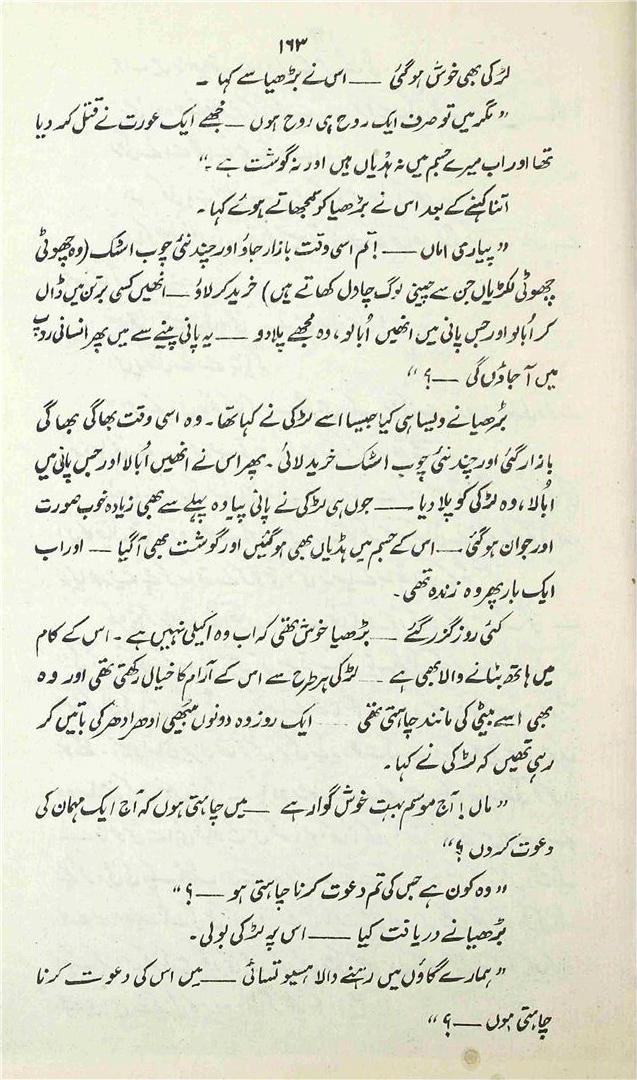 ۱۶۳
لڑکی بھی خوش ہو گئی —— اس نے بڑھیا سے کہا ۔
” مگر میں تو صرف ایک روح ہی روح ہوں — مجھے ایک عورت نے قتل کر دیا
تھا اور اب میرے جسم میں نہ ہڈیاں ہیں اور نہ گوشت ہے ۔“
اتنا کہنے کے بعد اس نے بڑھیا کو سمجھاتے ہوئے کہا ۔
” پیاری اماں —— ! تم اسی وقت بازار جاؤ اور چند نئی چوب اسٹک (وہ چھوٹی
چھوٹی لکڑیاں جن سے چینی لوگ چاول کھاتے ہیں) خرید کر لاؤ — انھیں کسی برتن میں ڈال
کر اُبالو اور جس پانی میں انھیں اُبالو ، وہ مجھے پلا دو —— یہ پانی پینے سے میں پھر انسانی روپ
میں آ جاؤں گی —؟ “
بڑھیا نے ویسا ہی کیا جیسا اسے لڑکی نے کہا تھا ۔ وہ اسی وقت بھاگی بھاگی
بازار گئی اور چند نئی چوب اسٹک خرید لائی ۔ پھر اس نے انھیں اُبالا اور جس پانی میں
اُبالا ، وہ لڑکی کو پلا دیا —— جوں ہی لڑکی نے پانی پیا وہ پہلے سے بھی زیادہ خوب صورت
اور جوان ہو گئی — اس کے جسم میں ہڈیاں بھی ہو گئیں اور گوشت بھی آ گیا — اور اب
ایک بار پھر وہ زندہ تھی ۔
کئی روز گزر گئے —— بڑھیا خوش تھی کہ اب وہ اکیلی نہیں ہے ۔ اس کے کام
میں ہاتھ بٹانے والا بھی ہے —— لڑکی ہر طرح سے اس کے آرام کا خیال رکھتی تھی اور وہ
بھی اسے بیٹی کی مانند چاہتی تھی —— ایک روز وہ دونوں بیٹھی اِدھر اُدھر کی باتیں کر
رہی تھیں کہ لڑکی نے کہا ۔
” ماں ! آج موسم بہت خوش گوار ہے —— میں چاہتی ہوں کہ آج ایک مہمان کی
دعوت کر دوں ؟ “
” وہ کون ہے جس کی تم دعوت کرنا چاہتی ہو —؟ “
بڑھیا نے دریافت کیا —— اس پہ لڑکی بولی ۔
” ہمارے گاؤں میں رہنے والا ہسیو تسائی —— میں اس کی دعوت کرنا
چاہتی ہوں —؟ “